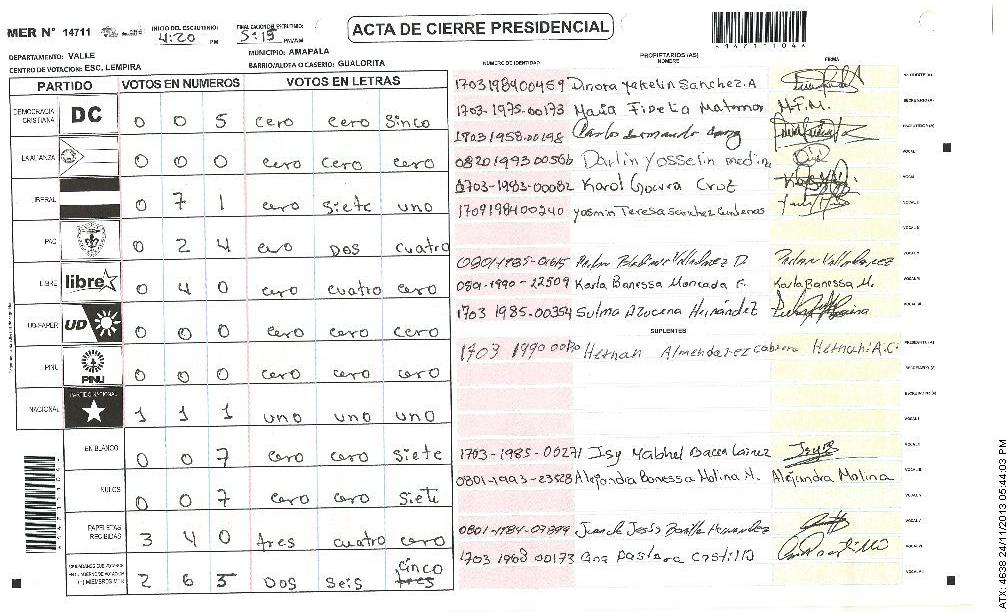 MER N° 14711
INICIO DEL ESCRUTINIO: 4:20 PM
FINALIZACION DEL ESCRUTINIO: 5:15 PM/AM
ACTA DE CIERRE PRESIDENCIAL
DEPARTAMENTO: VALLE
MUNICIPIO: AMAPALA
CENTRO DE VOTACION: ESC, LEMPIRA
BARRIO/ALDEA O CASERIO: GUALORITA
PARTIDO VOTOS EN NUMEROS VOTOS EN LETRAS
DEMOCRACIA CRISTIANA DC 0 0 5 cero cero Sinco
LA ALIANZA 0 0 0 cero cero cero
LIBERAL 0 7 1 cero siete uno
PAC 0 2 4 cero DOS cuatro
LIBRE libre 0 4 0 cero cuatro cero
UD-FAPER UD 0 0 0 cero cero cero
PINU PINU 0 0 0 cero cero cero
NACIONAL PARTIDO NACIONAL 1 1 1 uno uno uno
EN BLANCO 0 0 7 cero cero siete
NULOS 0 0 7 cero cero siete
PAPELETAS RECIBIDAS 3 4 0 tres cuatro cero
2 6 5 DOS seis cinco tres
NUMERO DE IDENTIDAD PROPIETARIOS (AS) NOMBRE FIRMA
1703198400459 Dinora Yakelin Sanchez.A
1703-1975-00173 Maria Fidelia Matamoros M.F.M.
17031958-00198 Carlos Armando
0820199300566 Darlin Yosselin medina
1703-1983-00082 Karol Govvra Cruz
1709198400240 yasmin Teresa Sanchez Cardenas
0801-1985-01615 Valladarez D.
0801-1990-22509 Karla Banessa Moncada F. Karla Banessa M.
1703 1985-00354 Sulma Azucena Hernández
SUPLENTES
1703 1990 Hernan Almendarez Cabrera Hernan A.C.
1703-1985-00271 Isy Mabhel Bacca Lainez
0801-1993-23528 Alejandra Banessa Molina M. Alejandra Molina
0801-1984-07899 Juan de Jesús Bonilla Hernandez
1703 1968 00173 Ana Pastora Castillo
ATX: 4638 24/11/2013 05:44:03 PM